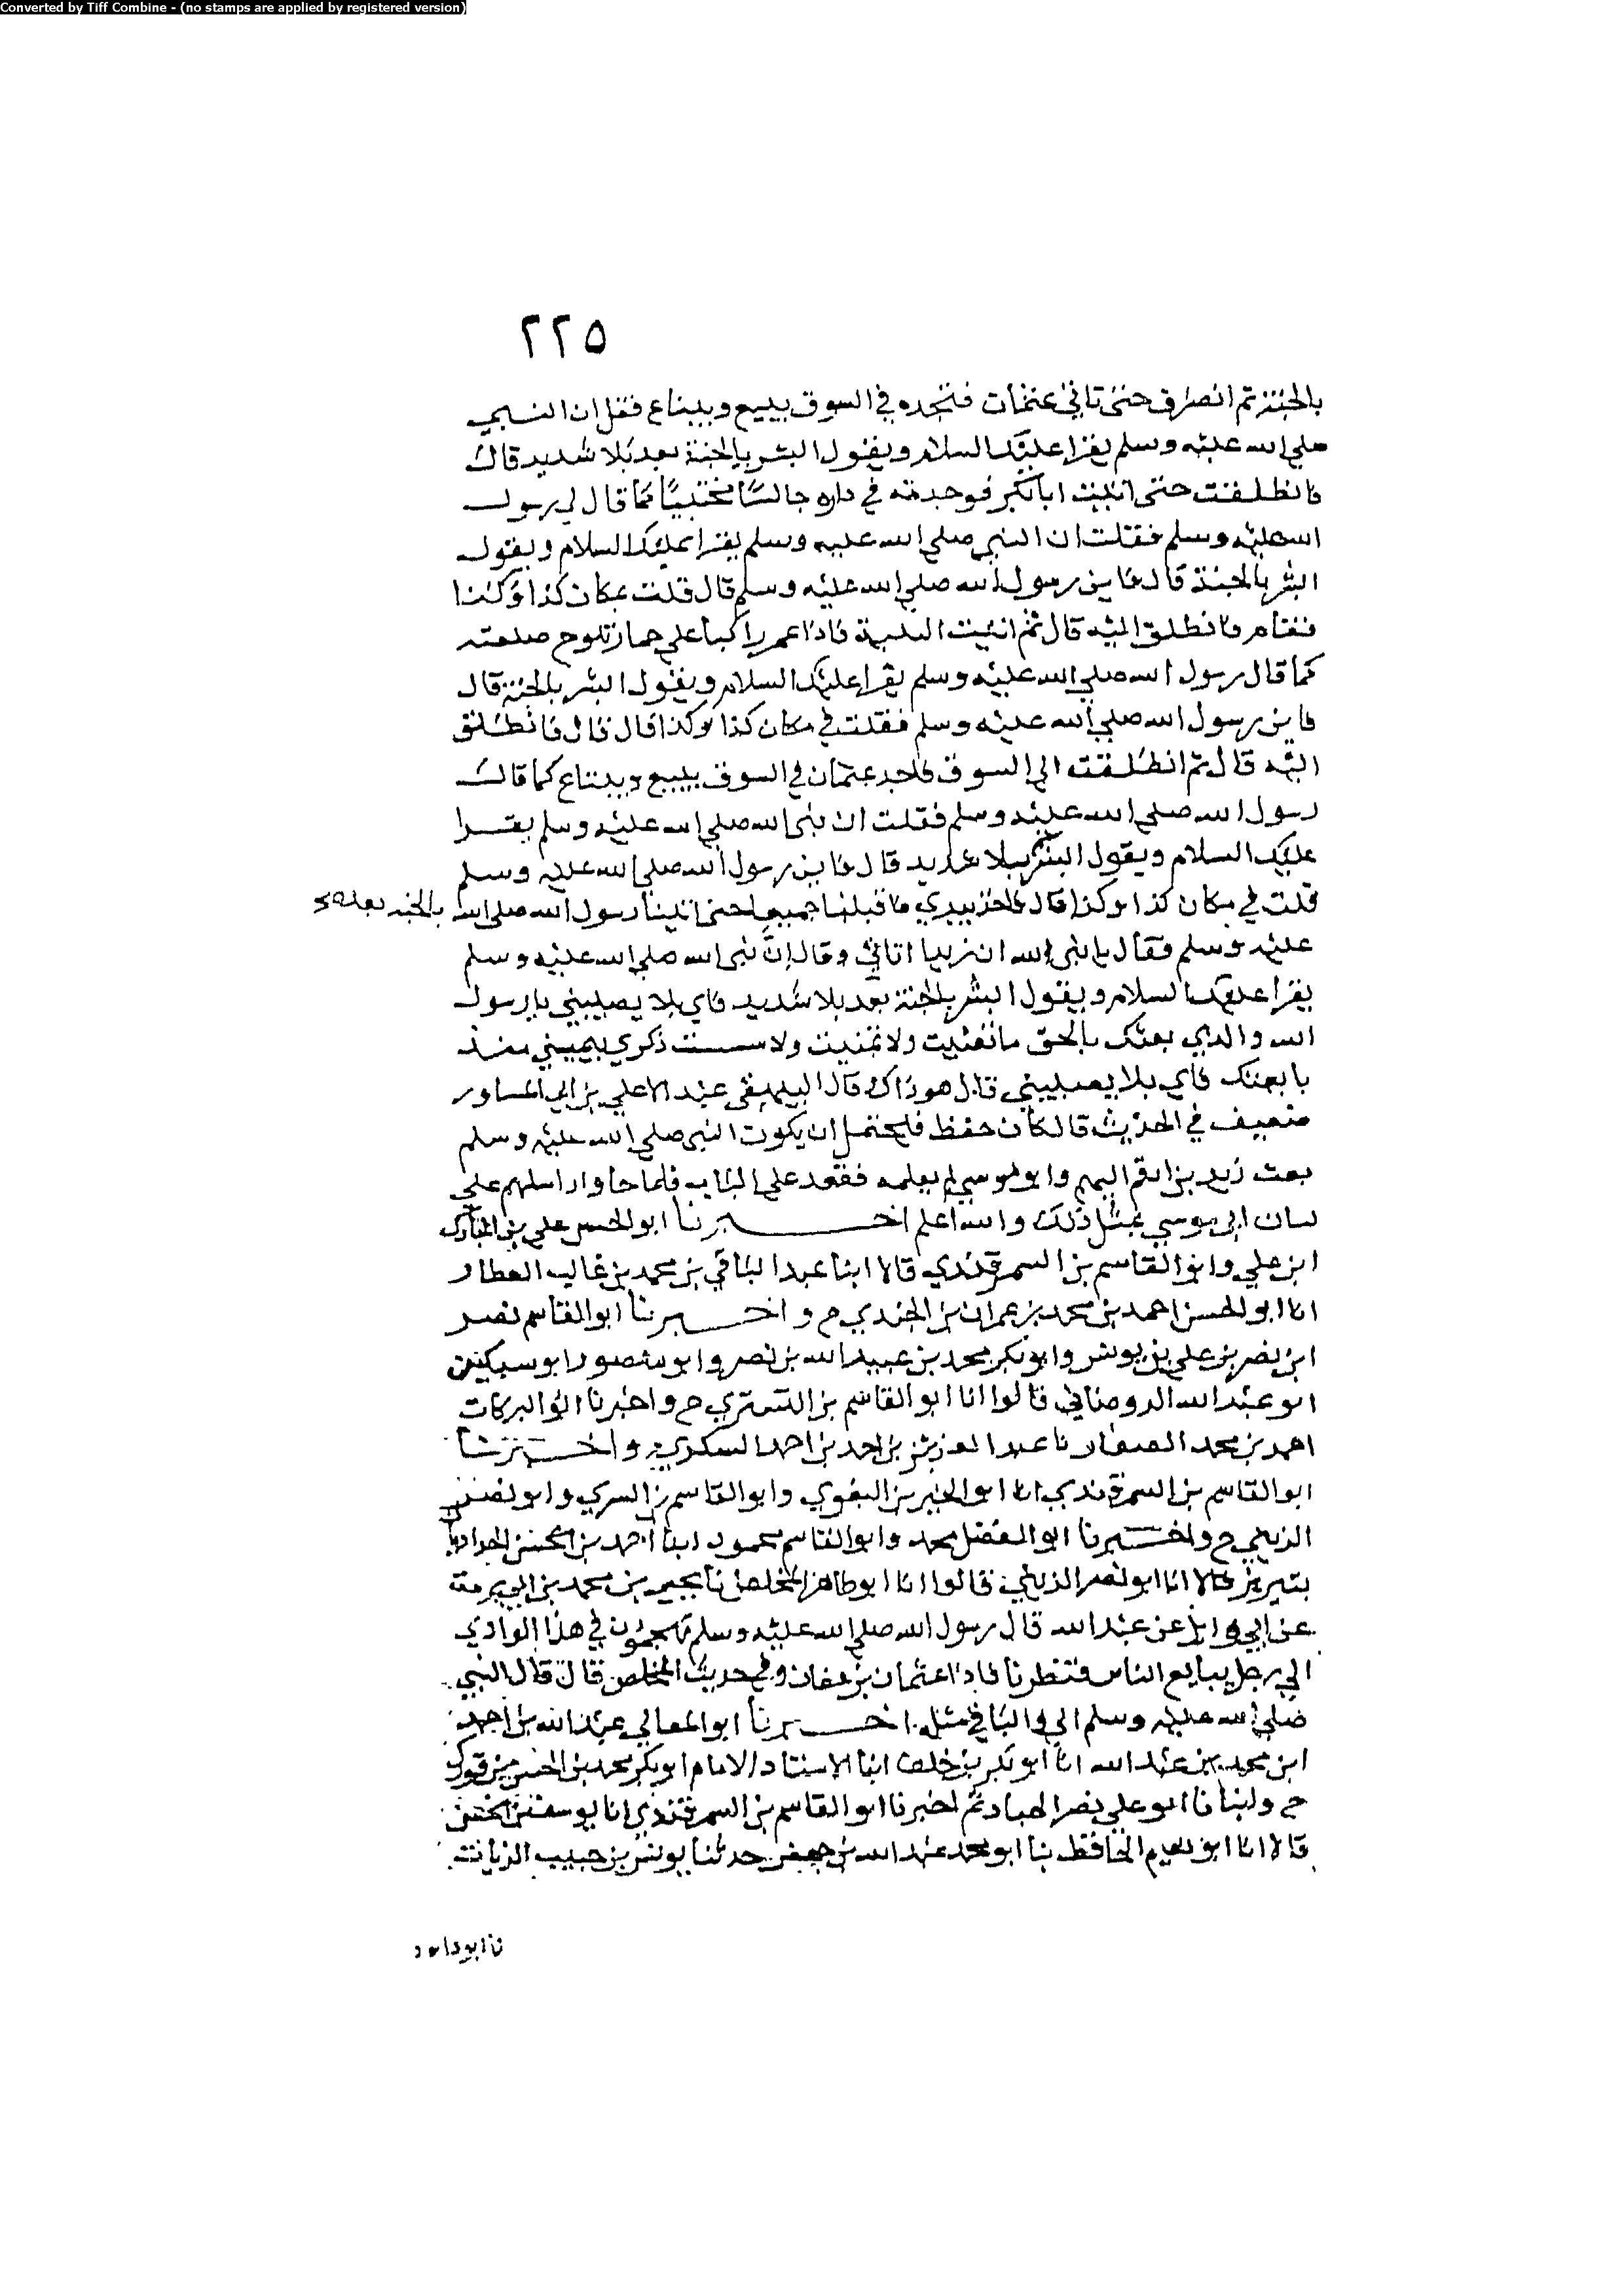 Converted by Tiff Combine - (no stamps are applied by registered version)
٢٢٥
بالجنة ثم انصرف حتى تاتي عثمان فتجده في السوق يبيع ويبتاع فقل ان النبي
صلي الله عليه وسلم يقرا عليك السلام ويقول ابشر بالجنة بعد بلا شديد قال
فانطلقت حتى اتيت ابا بكر فوجدته في داره جالسًا محتبيًا كما قال لي رسول
الله عليه وسلم فقلت ان النبي صلي الله عليه وسلم يقرا عليك السلام ويقول
ابشر بالجنة قال فاين رسول الله صلي الله عليه وسلم قال قلت بمكان كذا وكذا
فقام فانطلق اليه قال ثم اتيت الثنية فاذا عمر راكبا علي حمار تلوح صلعته
كما قال رسول الله صلي الله عليه وسلم يقرا عليك السلام ويقول ابشر بالجنة قال
فاين رسول الله صلي الله عليه وسلم فقلت في مكان كذا وكذا قال قال فانطلق
اليه قال ثم انطلقت الي السوق فاجد عثمان في السوق يبيع ويبتاع كما قال
رسول الله صلي الله عليه وسلم فقلت ان نبى الله صلي الله عليه وسلم يقرا
عليك السلام ويقول ابشر ببلا شديد قال فاين رسول الله صلي الله عليه وسلم
قلت في مكان كذا وكذا قال فاخذ بيدي فاقبلنا جميعا حتى اتينا رسول الله صلي الله بالجنه بعد
عليه وسلم فقال يا نبى الله ان زيدا اتاني وقال إنَّ نبى الله صلي الله عليه وسلم
يقرا عليك السلام ويقول ابشر بالجنة بعد بلا شديد فاي بلا يصيبني يا رسول
الله والذي بعثك بالحق ما تغنيت ولا تمنيت ولا مسست ذكري بيميني منذ
بايعتك فاي بلا يصيبني قال هو ذاك قال البيهقي عبد الاعلي بن ابي المساور
ضعيف في الحديث قال كان حفظ فليحتمل ان يكون النبي صلي الله عليه وسلم
بعث زيد بن ارقم اليهم وابو موسي لم يعلمه فقعد علي الباب فلما جاوا ارسلهم علي
لسان ابي موسي بمثل ذلك والله اعلم اخبرنا ابو الحسن علي بن المبارك
ابن علي وابو القاسم بن السمرقندي قالا ابنا عبد الباقي بن محمد بن غالب العطار
انا ابو الحسن احمد بن محمد بن عمران بن الجندي ح واخبرنا ابو القاسم نصر
ابن نصر بن علي بن يونس وابو بكر محمد بن عبيد الله بن نصر وابو منصور
ابو عبد الله قالوا انا ابو القاسم بن التستري ح واخبرنا ابو البركات
احمد بن محمد الصفار نا عبد العزيز بن احمد بن احمد السكري واخبرنا
ابو القاسم بن السمرقندي انا ابو الحسين البغوي وابو القاسم بن السري وابو نصر
الزينبي ح واخبرنا ابو الفضل محمد وابو القاسم محمود ابنا احمد بن الحسن
بتبريز قالا انا ابو نصر الزينبي قالوا انا ابو طاهر المخلص نا يحيى بن محمد بن
عن ابي وايل عن عبد الله قال رسول الله صلي الله عليه وسلم تهجمون في هذا الوادي
الي رجل يبايع الناس فنظرنا فاذا عثمان بن عفان وفي حديث المخلص قال قال النبي
صلي الله عليه وسلم الي والباقي مثله اخبرنا ابو المعالي عبد الله بن احمد
ابن محمد بن عبد الله انا ابو بكر بن خلف انبا الاستاد الامام ابو بكر محمد بن الحسن بن فورك
ح وابنا نا ابو علي ثم اخبرنا ابو القاسم بن السمرقندي انا يوسف بن الحسن
قالا انا ابو نعيم الحافظ نا ابو محمد عبد الله بن جعفر حدثنا يونس بن حبيب
نا ابو داود